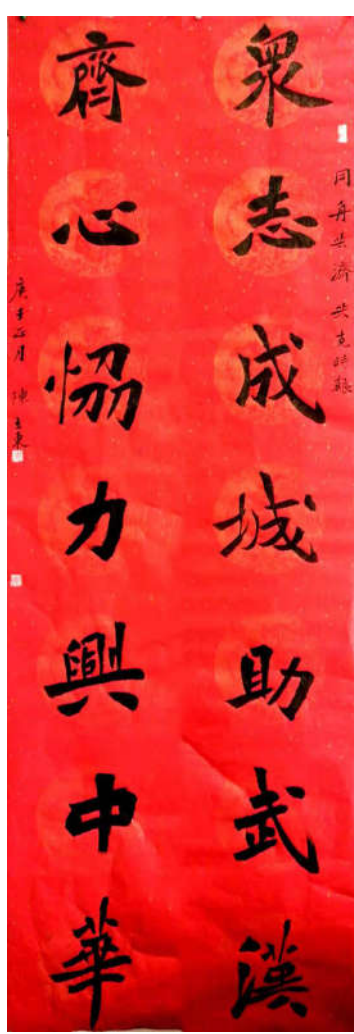 眾志成城助武漢
同舟共濟 共克時艱
齊心恊力興中華
庚子正月 陳立東